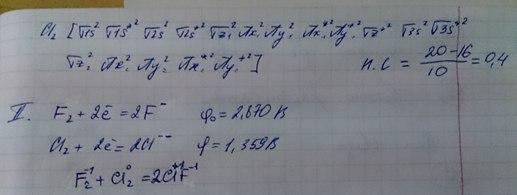 Cl₂ [σ1s² σ1s*² σ2s² σ2s*² σz² πx² πy² πx*² πy*² σz*² σ3s² σ3s*²
σz² πx² πy² πx*² πy*²] п.с = (20-16)/10 = 0,4
II. F₂ + 2ē = 2F⁻ φ₀ = 2,870 В
Cl₂ + 2ē = 2Cl⁻⁻ φ = 1,359 В
F₂⁻¹ + Cl₂⁰ = 2Cl⁺¹F⁻¹